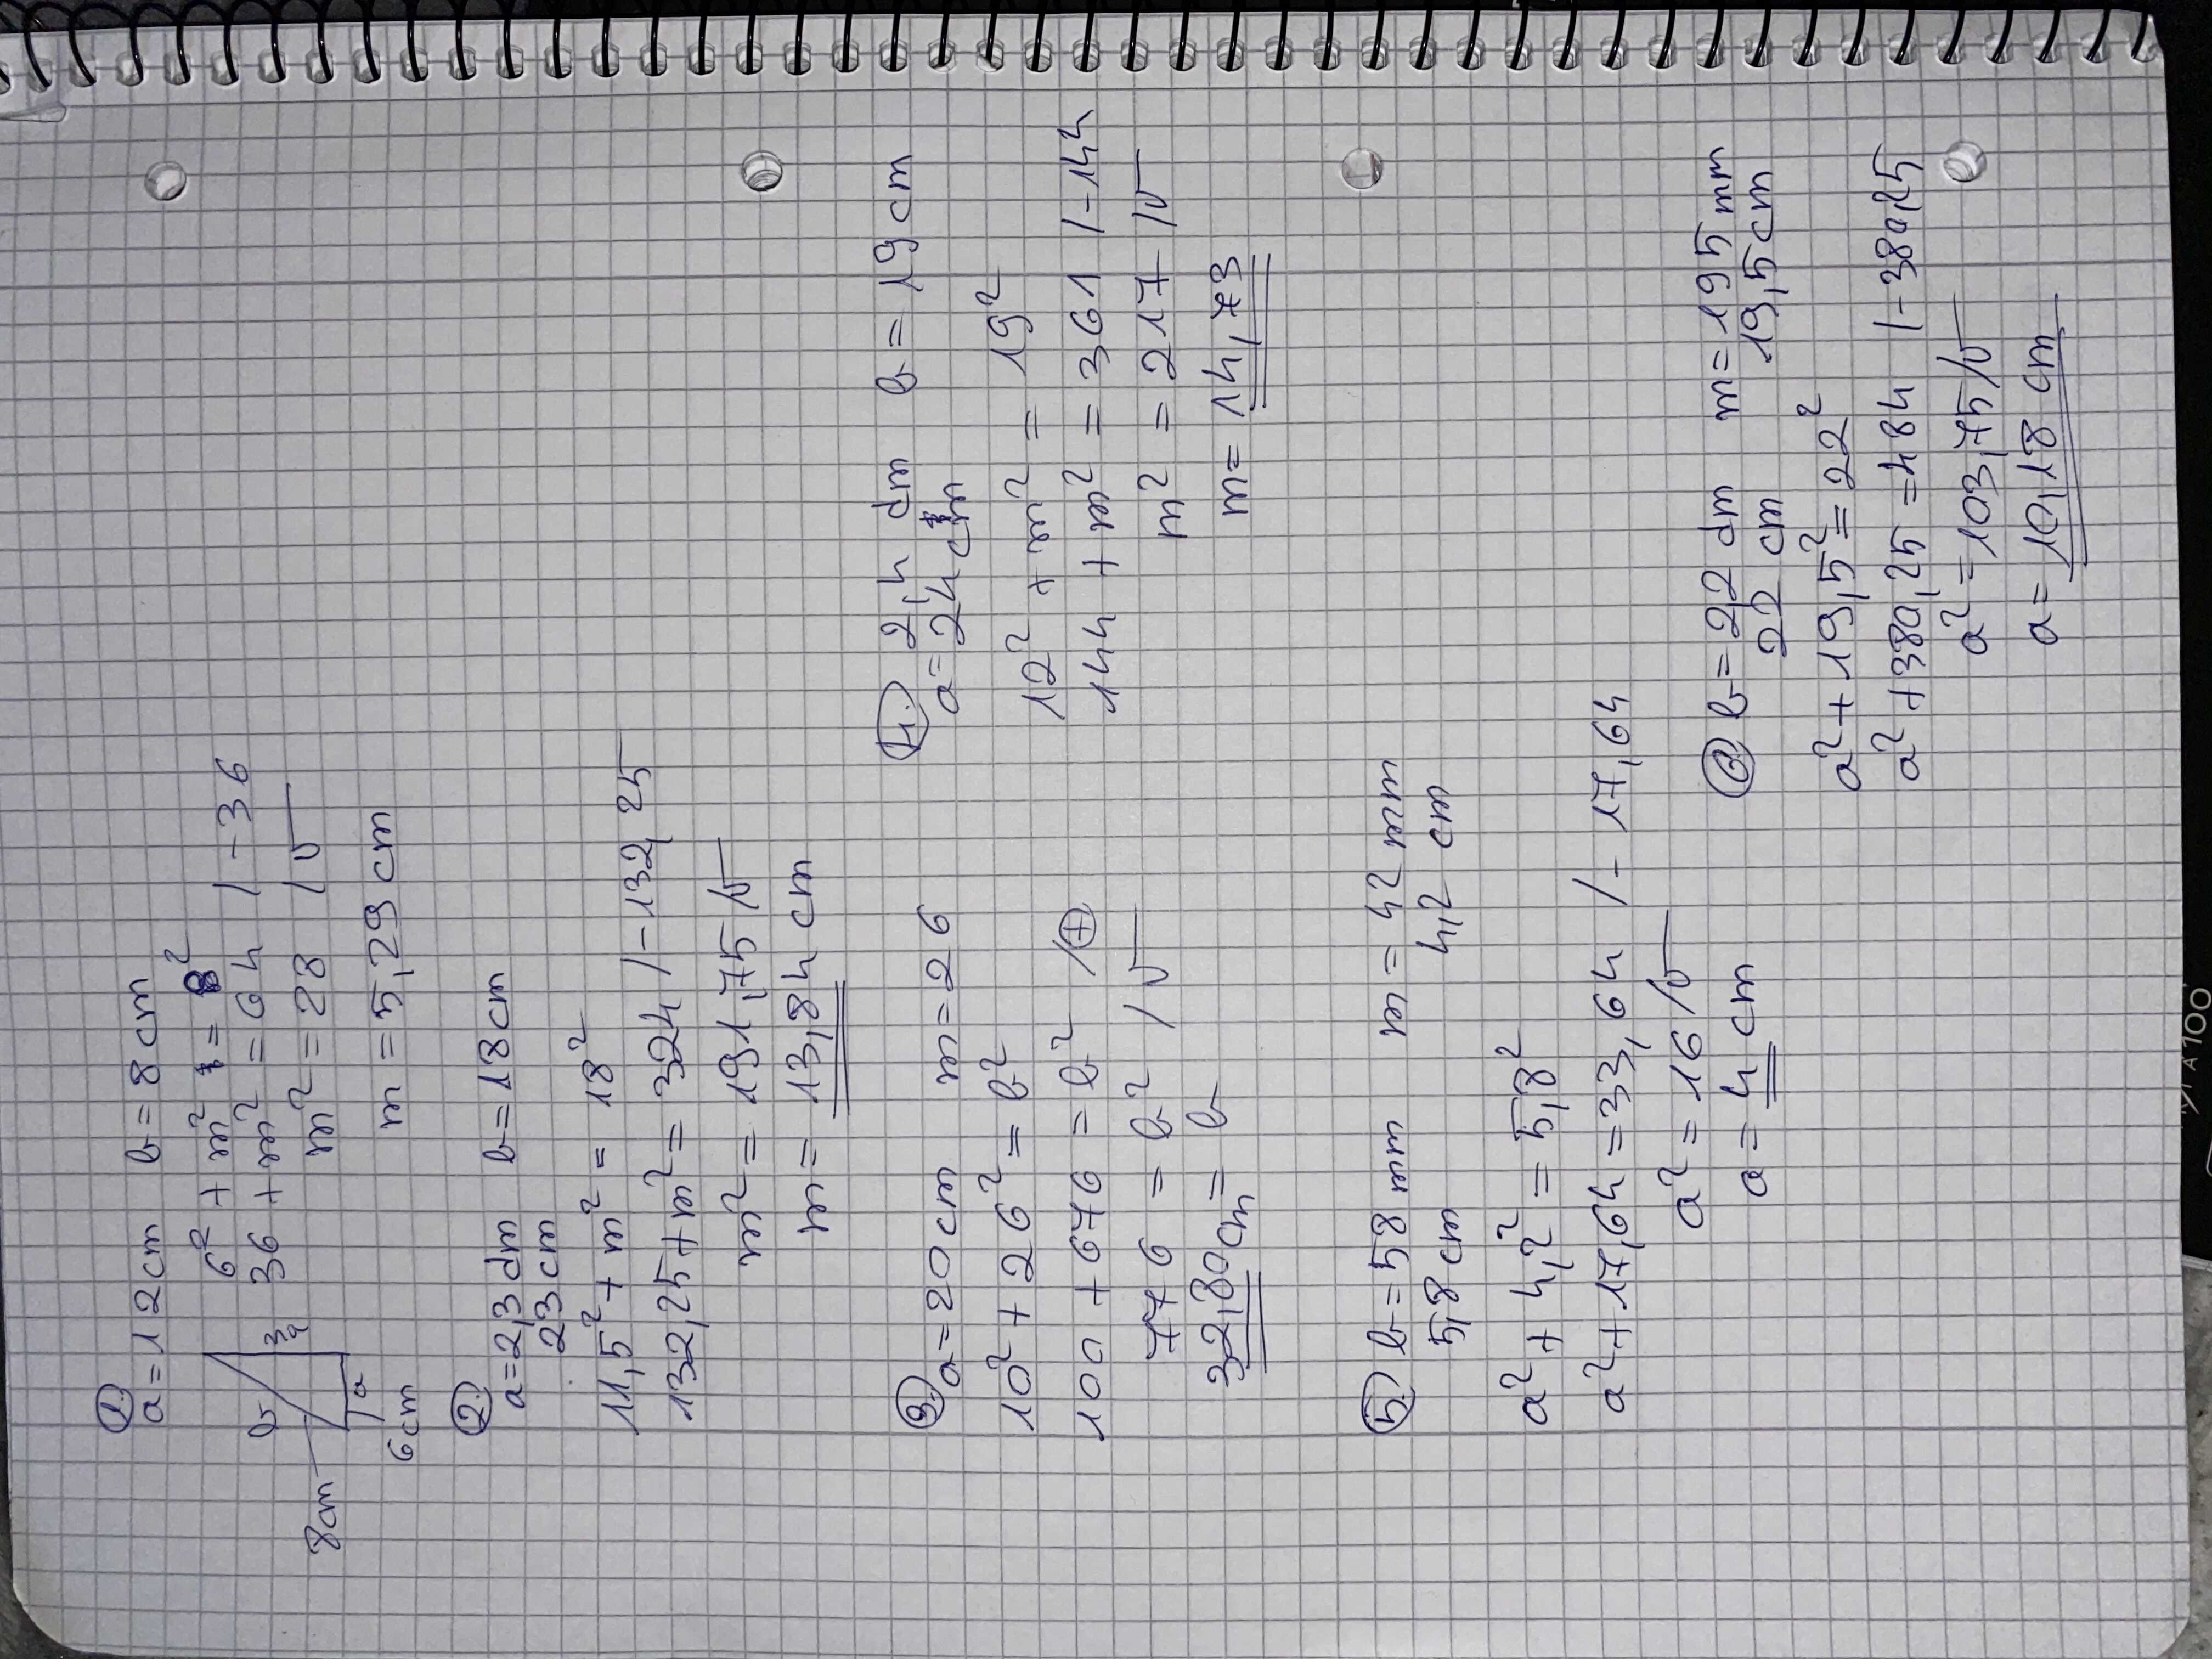 1.
a=12cm b=8cm
6² + m² = 8²
36 + m² = 64 /-36
m² = 28 /√
m = 5,29 cm
b
a
8cm
6cm
2.
a=2,3 dm b=18cm
23cm
11,5² + m² = 18²
132,25+m² = 324 /-132,25
m² = 191,75 /√
m= 13,84 cm
3.
a=20cm m=26
10² + 26² = b²
100 + 676 = b² /+
776 = b² /√
32,80cm = b
4.
2,4 dm b=19cm
a=24cm
12² + m² = 19²
144 + m² = 361 /-144
m² = 217 /√
m= 14,73
5. b=58 mm m=42 mm
5,8cm 4,2 cm
a² + 4,2² = 5,8²
a²+17,64=33,64 /-17,64
a² = 16 /√
a= 4 cm
6. b=2,2 dm m=195mm
22 cm 19,5cm
a²+19,5²=22²
a²+380,25=484 /-380,25
a²=103,75/√
a= 10,18 cm
A 100